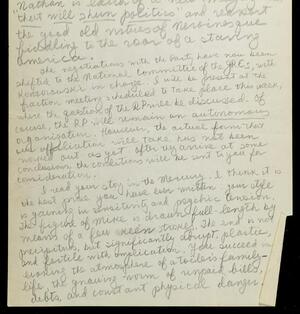 Nathan is editor of a new
that will shun politics and reassert
the good old virtues of
fiddling to the roar of a starving
america.
The negotiations with the Party have now been
shifted to the National Committee of the JRCs, with
in charge. I will be present at the
fraction meeting scheduled to take place this week,
where the question of the RP will be discussed. Of
course, the RP will remain an autonomous
organization. However, the actual form that
the affiliation will take has not been
worked out as yet. After we arrive at some
conclusions, the conditions will be sent to you for
consideration.
I read your story in the Morning. I think it is
the best prose you have ever written. Your style
is gaining in consistent and psychic tension.
The figure of Mike is drawn full-length by
means of a few keen strokes. The end is not
but significantly abrupt, plastic,
and fertile with implication. You succeed in
evoking the atmosphere of a toilers family-
life, the gnawing worm of unpaid bills,
debts, and constant physical danger.